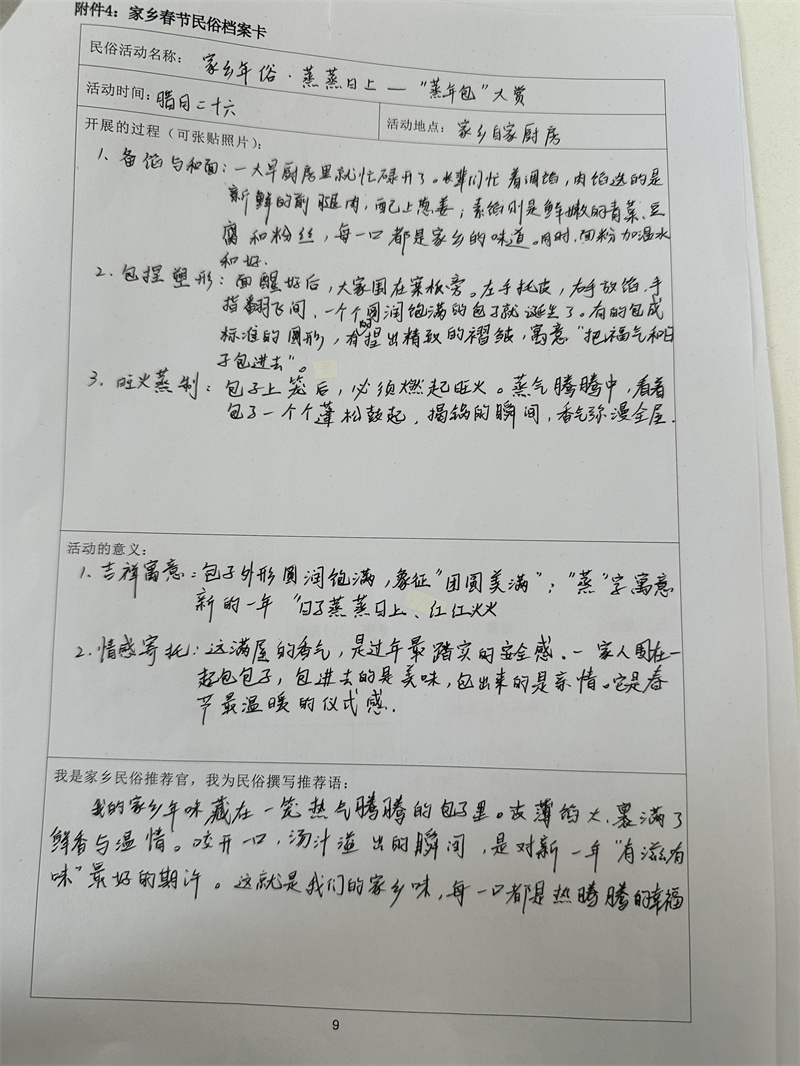 附件4：家乡春节民俗档案卡
民俗活动名称： 家乡年俗·蒸蒸日上—“蒸年包”大赏
活动时间：腊月二十六
活动地点： 家乡自家厨房
开展的过程（可张贴照片）：
1、备馅与和面：一大早厨房里就忙碌开了。长辈们忙着调馅，肉馅选的是
新鲜的前腿肉，配上葱姜；素馅则是鲜嫩的青菜、豆
腐和粉丝，每一口都是家乡的味道。同时，面粉加温水
和好.
2、包捏塑形：面醒好后，大家围在案板旁。左手托皮，右手放馅，手
指翻飞间，一个个圆润饱满的包子就诞生了。有的包成
标准的圆形，有的捏出精致的褶皱，寓意“把福气和日
子包进去”。
3、旺火蒸制：包子上笼后，必须燃起旺火。蒸气腾腾中，看着
包子一个个蓬松鼓起，揭锅的瞬间，香气弥漫全屋.
活动的意义：
1、吉祥寓意：包子外形圆润饱满，象征“团圆美满”；“蒸”字寓意
新的一年“日子蒸蒸日上、红红火火
2、情感寄托：这满屋的香气，是过年最踏实的安全感。一家人围在一
起包包子，包进去的是美味，包出来的是亲情。它是春
节最温暖的仪式感.
我是家乡民俗推荐官，我为民俗撰写推荐语：
我的家乡年味藏在一笼热气腾腾的包子里。皮薄馅大、裹满了
鲜香与温情。咬开一口，汤汁溢出的瞬间，是对新一年“有滋有
味”最好的期许。这就是我们的家乡味，每一口都是热腾腾的幸福
9